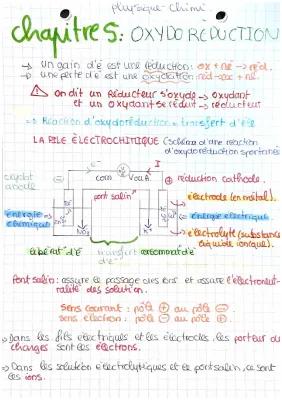 physique-Chimi
chapitre 5: OXYDORÉDUCTION
→ un gain d'é est une réduction: ox + né → réd.
→ une perte d'é est une oxydation: red → ox + né.
⚠ on dit un Réducteur s'oxyde → oxydant
et un oxydant se réduit → réducteur
=> Réaction d'oxydoréduction = transfert d'é
LA PILE ÉLECTROCHIMIQUE (schéma d'une réaction
d'oxydoréduction spontanée
e⁻ V I
com V ou A
⊖ anode ⊕ réduction cathode.
pont salin
électrode (en métal).
énergie chimique énergie électrique
électrolyte (substance
liquide ionique).
libérat° d'é transfert d'é consommat° d'é
Pont salin: assure le passage des ions et assure l'électroneut-
ralité des solution.
sens courant: pôle ⊕ au pôle ⊖.
sens électron: pôle ⊖ au pôle ⊕.
→ Dans les fils électriques et les électrodes, les porteur de
charges sont les électrons.
→ Dans les solution électrolytiques et le pont salin, ce sont
les ions.